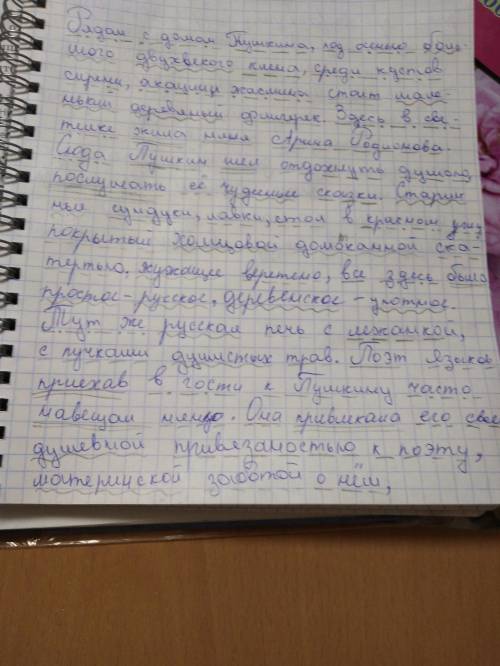 Рядом с домом Пушкина, под сенью боль-
шого двухвекого клена, среди кустов
сирени, акации жасмина стоит мале-
нький деревяный флигилек. Здесь в све-
тилке жила няня Арина Родионова.
Сюда Пушкин шел отдохнуть душой,
послушать её чудесные сказки. Старин
ные сундуки, лавки, стол в красном углу
покрытый холщовой домотканной ска-
тертью, жужащее веретено, все здесь было
простое-русское, деревенское-уютное.
Тут же русская печь с лежанкой,
с пучками душистых трав. Поэт Языков
приехав в гости к Пушкину часто
навещал няню. Она привлекала его свое
душевной привязаностью к поэту,
материнской заботой о нём,